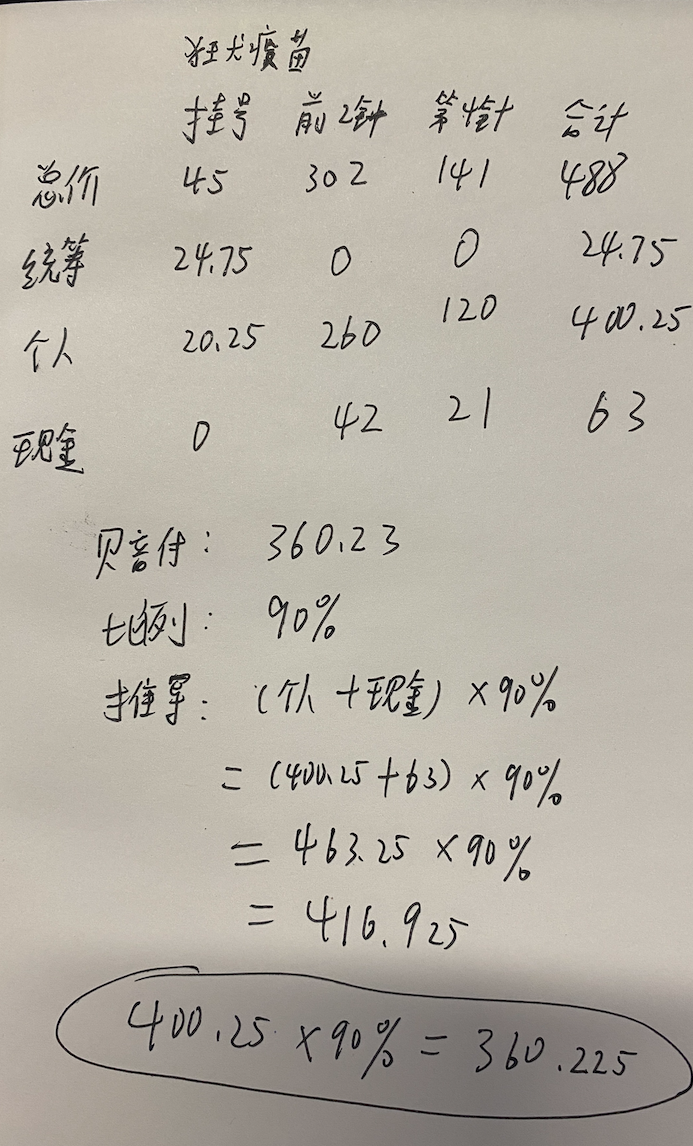 狂犬疫苗
挂号 前2针 第4针 合计
总价 45 302 141 488
统筹 24.75 0 0 24.75
个人 20.25 260 120 400.25
现金 0 42 21 63
赔付: 360.23
比例: 90%
推算: (个人+现金)×90%
=(400.25+63)×90%
=463.25×90%
=416.925
400.25×90%=360.225